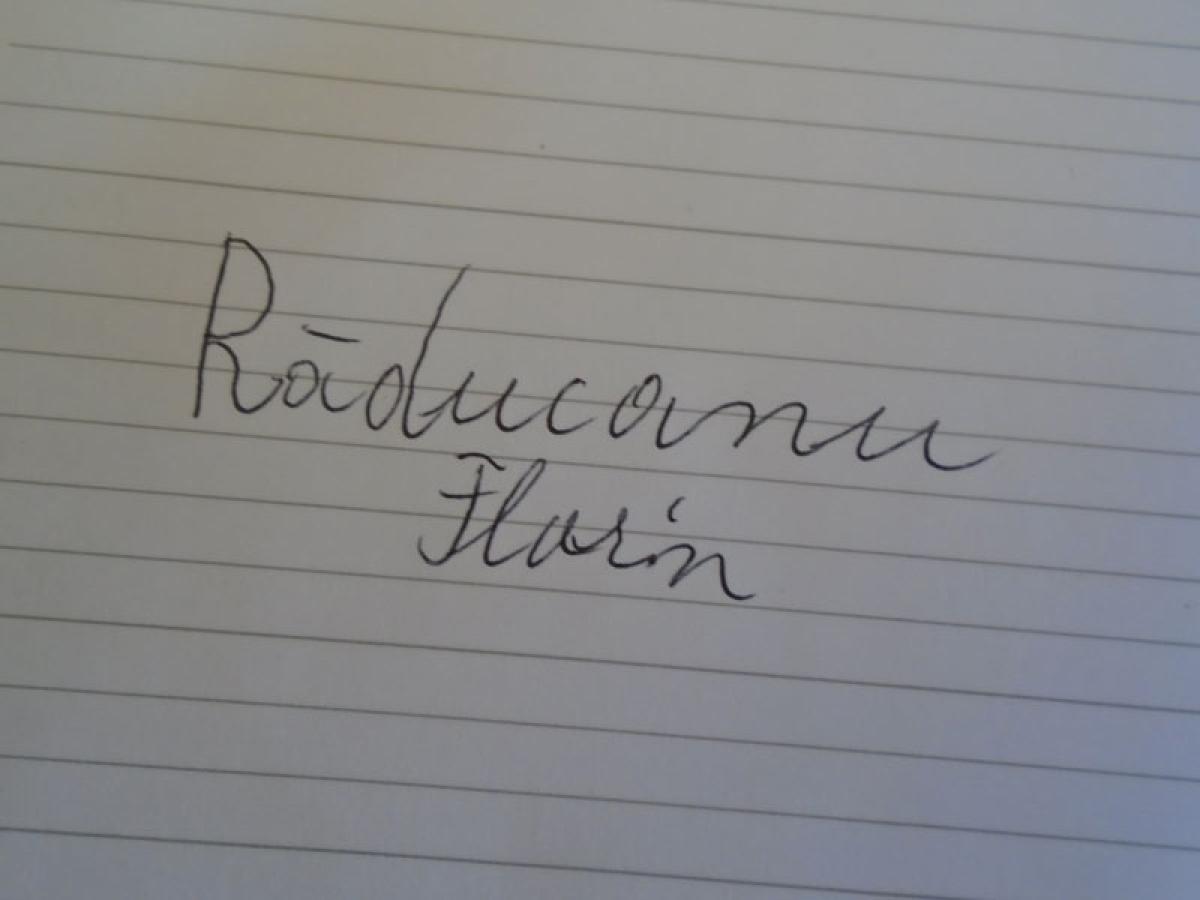 Răducanu
Florin